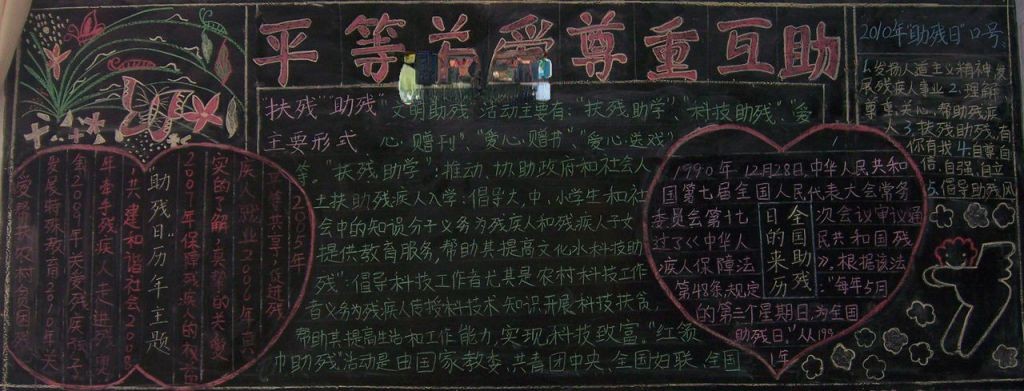 平等关爱尊重互助
扶残"助残"
主要形式
文明助残"活动主要有:"扶残助学"、"科技助残"、"爱
心赠刊"、"爱心赠书"、"爱心送戏"
等。"扶残助学":推动、协助政府和社会人
士扶助残疾人入学;倡导大、中、小学生和社
会中的知识分子义务为残疾人和残疾人子女
提供教育服务,帮助其提高文化水
"科技助
残":倡导科技工作者尤其是农村科技工作
者义务为残疾人传授科技术知识开展科技扶贫,
帮助其提高生活和工作能力,实现科技致富。"红领
巾助残"活动是由国家教委、共青团中央、全国妇联、全国
"助残日"历年主题
2005年
疾人就业2006年
实的了解,真挚的关爱
2007年保障残疾人的权益
,共建和谐社会2008
年牵手残疾人走进残奥
会2009年关爱残疾孩子
发展特殊教育2010年关
全国助残
日的来历
1990年12月28日,中华人民共和
国第七届全国人民代表大会常务
委员会第十七
次会议审议通
过了《中华人
民共和国残
疾人保障法
》,根据该法
第48条,规定
"每年5月
的第三个星期日,为全国
助残日。"从199
1年
2010年"助残日"口号
1.发扬人道主义精神,发
展残疾人事业2.理解
尊重、关心、帮助残疾
人3.扶残助残,有
你有我4.自尊、自
信、自强、自立
5.倡导助残风